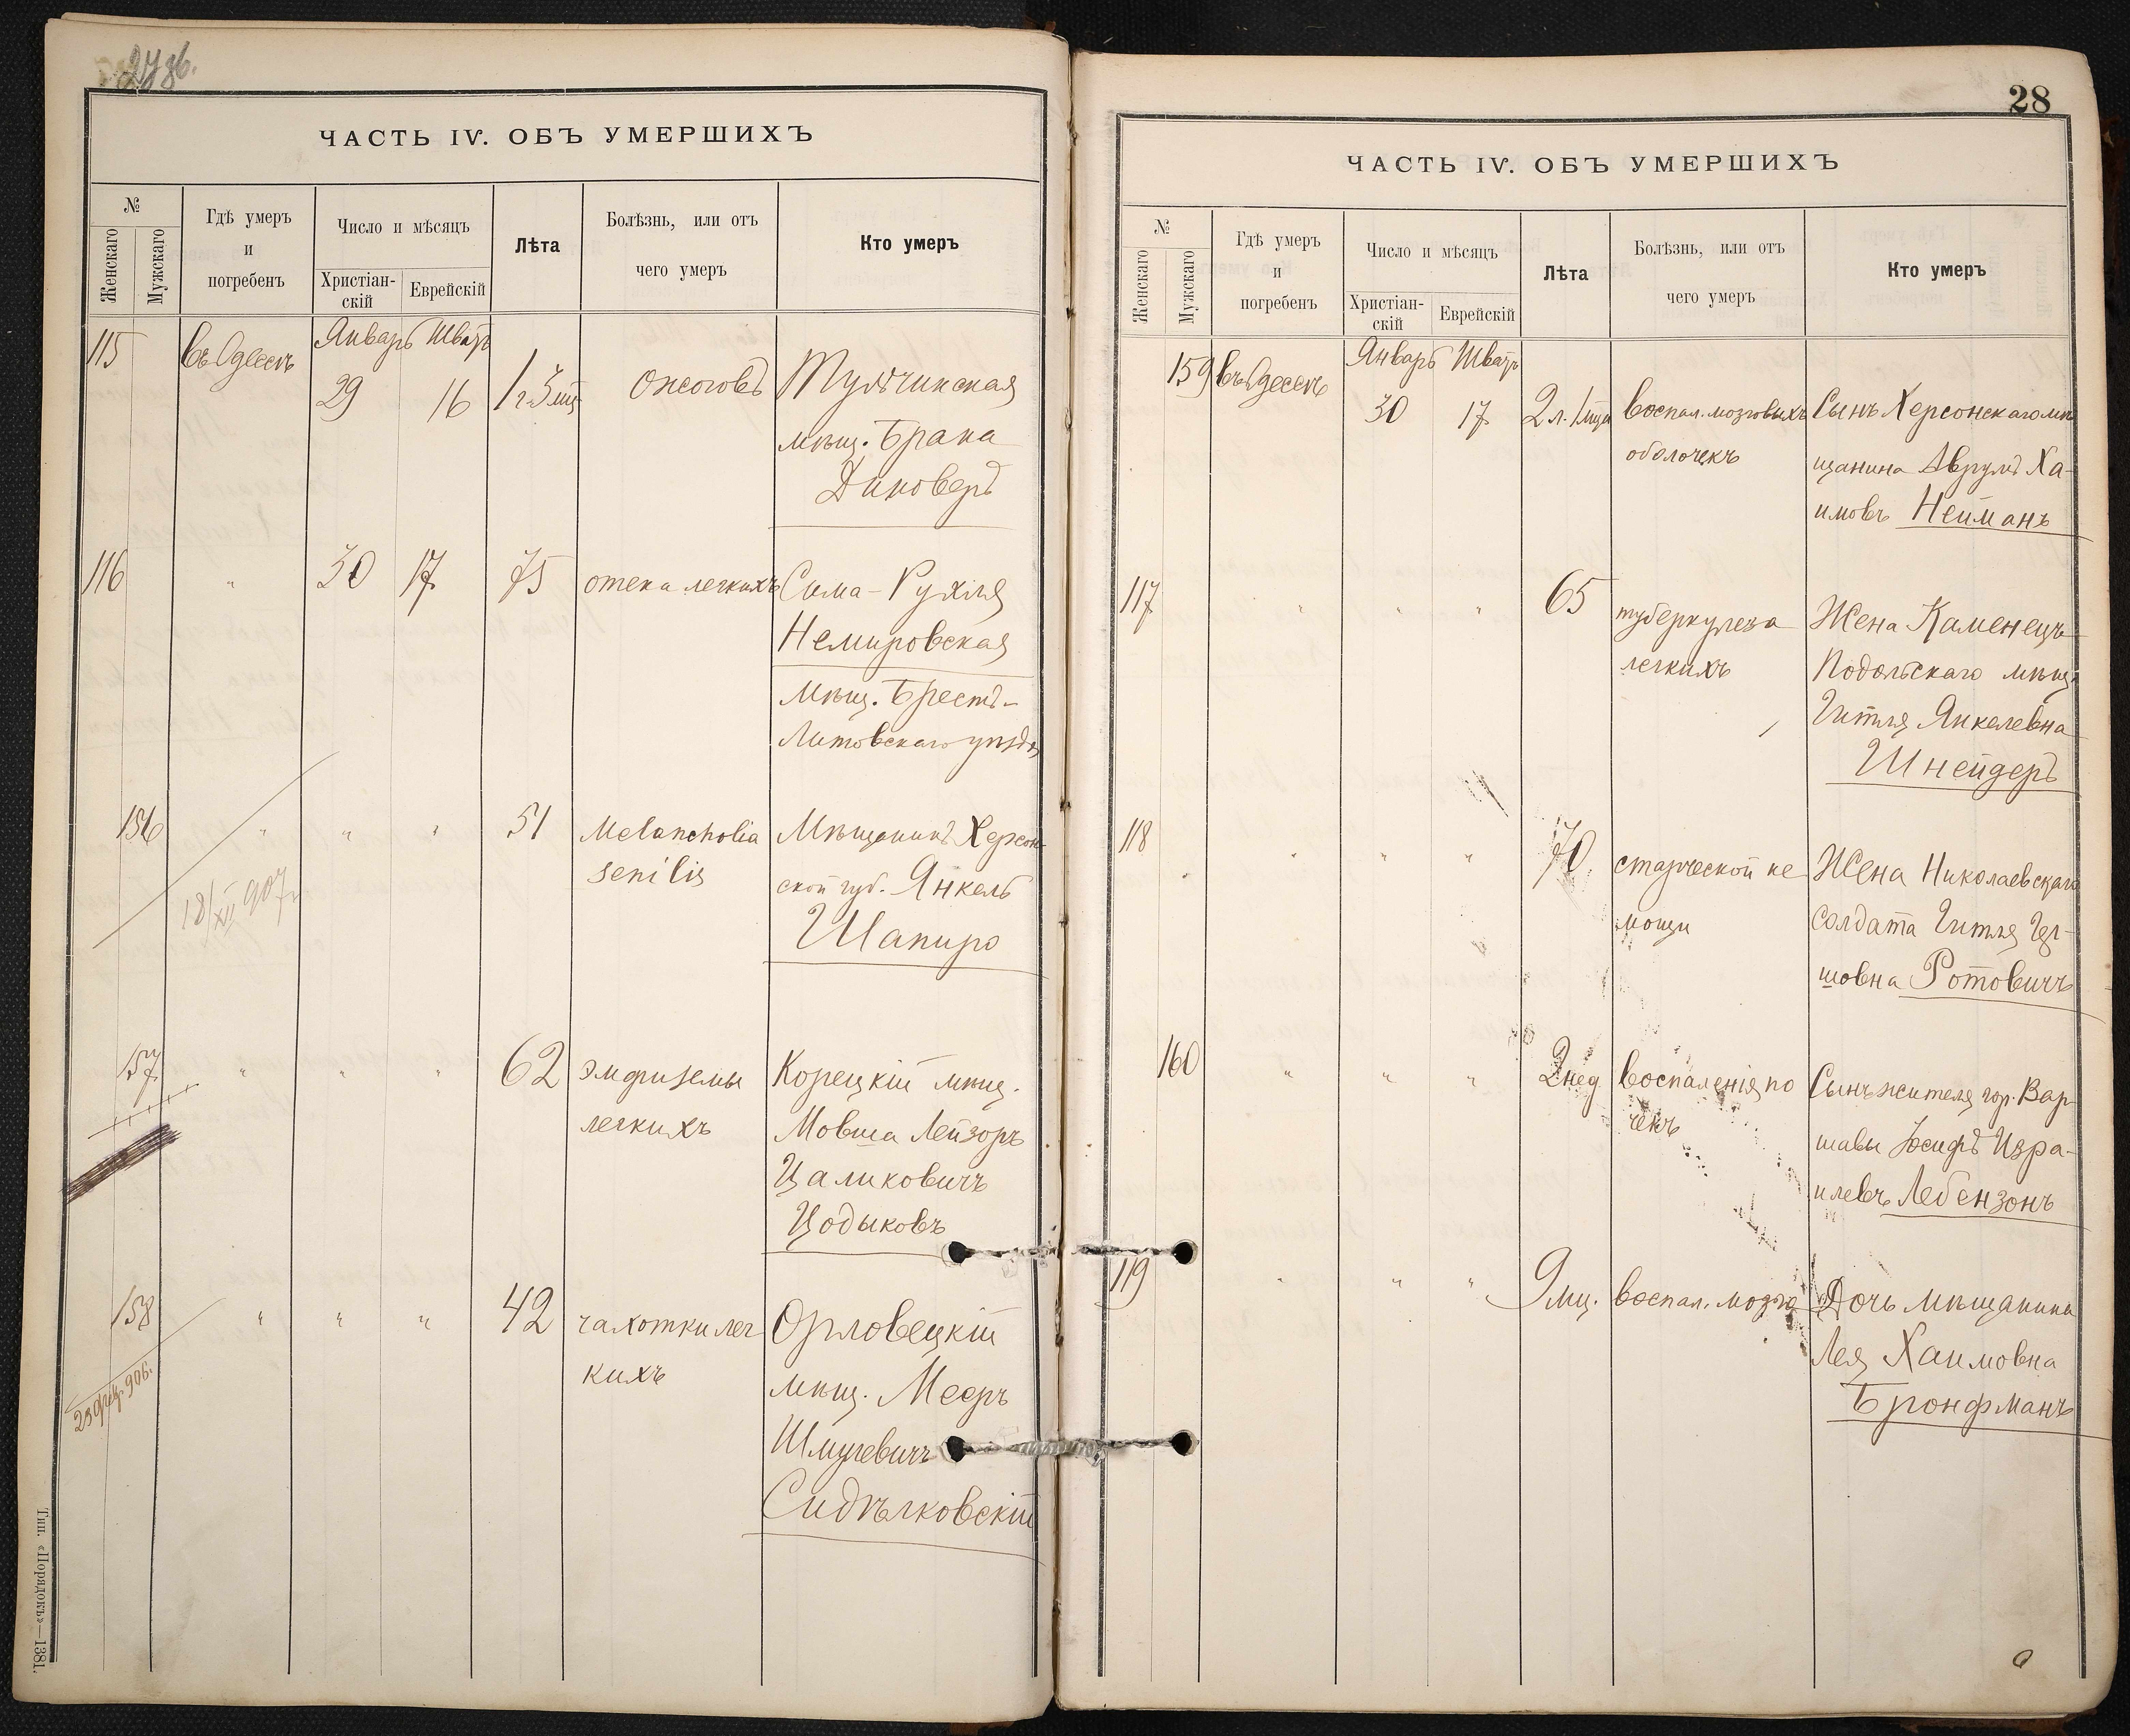 27 об.
ЧАСТЬ IV. ОБЪ УМЕРШИХЪ
№
Женскаго
Мужскаго
Гдѣ умеръ
и
погребенъ
Число и мѣсяцъ
Христіан-
скій
Еврейскій
Лѣта
Болѣзнь, или отъ
чего умеръ
Кто умеръ
115 въ Одессѣ Январь Шватъ
29 16 1 г. 3 мц. ожоговъ Тульчинская
мѣщ. Брана
Диноверъ
116 " 30 17 75 отека легкихъ Сима-Рухля
Немировская
мѣщ. Брестъ-
Литовскаго уѣзда
156 " " " 51 Melancholia Мѣщанинъ Херсон-
senilis ской губ. Янкель
Шапиро
18/XII 907 г.
157 " " " 62 эмфиземы Корецкій мѣщ.
легкихъ Мовша Лейзоръ
Цаликовичъ
Цодыковъ
158 " " " 42 чахотки лег Орловецкій
кихъ мѣщ. Мееръ
Шмулевичъ
Сидѣлковскій
906.
Тип. «Порядокъ»—1381.
28
ЧАСТЬ IV. ОБЪ УМЕРШИХЪ
№
Женскаго
Мужскаго
Гдѣ умеръ
и
погребенъ
Число и мѣсяцъ
Христіан-
скій
Еврейскій
Лѣта
Болѣзнь, или отъ
чего умеръ
Кто умеръ
159 въ Одессѣ Январь Шватъ
30 17 2 л. 1 мца воспал. мозговыхъ Сынъ Херсонскаго мѣ
оболочекъ щанина Аврумъ Ха-
имовъ Нейманъ
117 " " " 65 туберкулеза Жена Каменецъ-
легкихъ Подольскаго мѣщ.
Гитля Янкелевна
Шнейдеръ
118 " " " 70 старческой не Жена Николаевскаго
мощи солдата Гитля Гер-
шовна Ротовичъ
160 " " " 2 нед. воспаленія по Сынъ жителя гор. Вар
чекъ шавы Іосифъ Изра-
илевъ Лебензонъ
119 " " " 9 мц. воспал. мозга Дочь мѣщанина
Лея Хаимовна
Бронфманъ